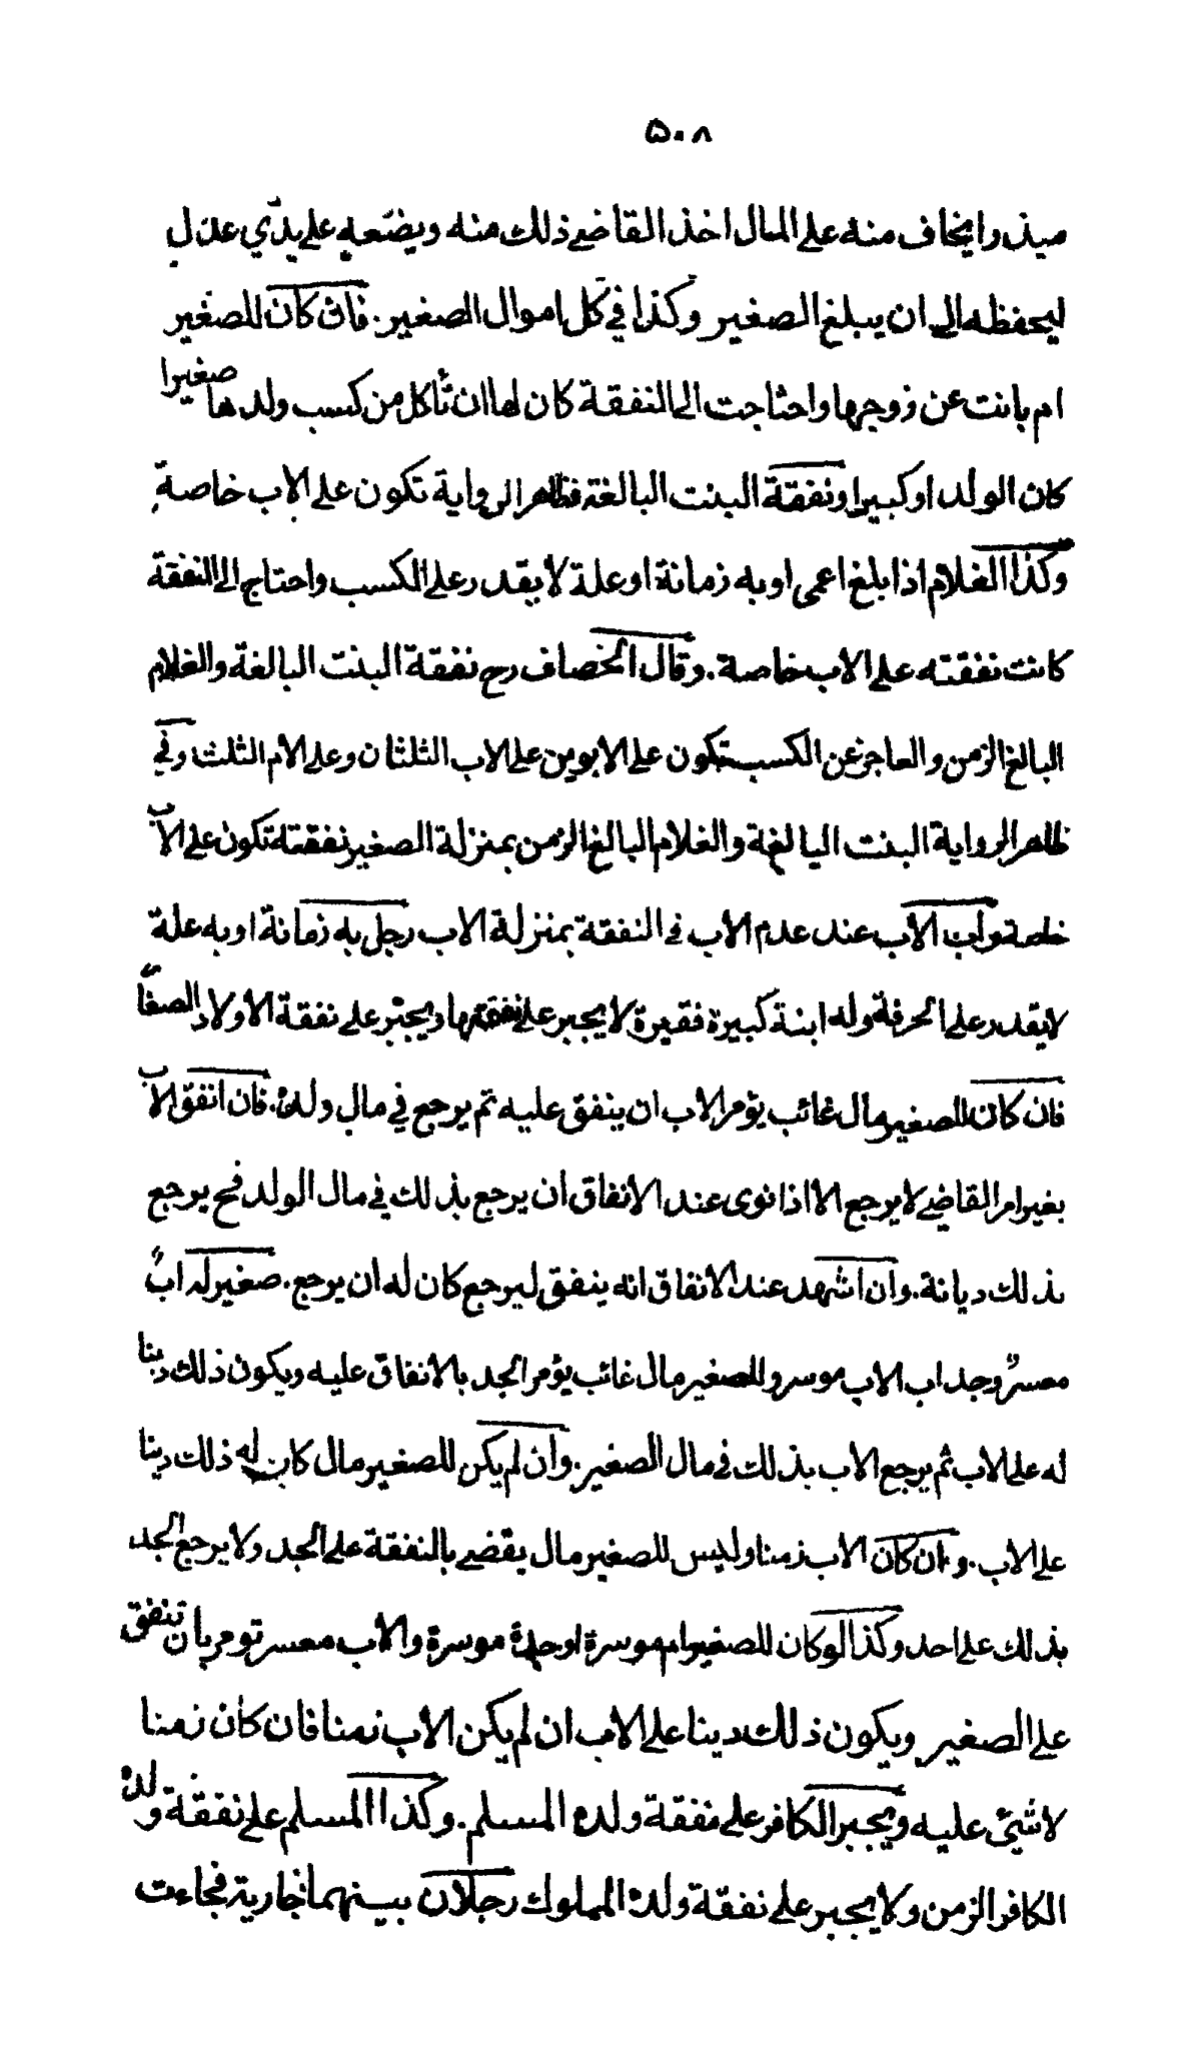 ٥٠٨
مبذرا يخاف منه على المال اخذ القاضي ذلك منه ويضعه على يدي عدل
ليحفظه الى ان يبلغ الصغير وكذا في كل اموال الصغير. فان كان للصغير
ام بانت عن زوجها واحتاجت الى النفقة كان لها ان تأكل من كسب ولدها صغيرا
كان الولد او كبيرا ونفقة البنت البالغة فظاهر الرواية تكون على الاب خاصة
وكذا الغلام اذا بلغ اعمى او به زمانة او علة لا يقدر على الكسب واحتاج الى النفقة
كانت نفقته على الاب خاصة. وقال الخصاف رح نفقة البنت البالغة والغلام
البالغ الزمن والعاجز عن الكسب تكون على الابوين على الاب الثلثان وعلى الام الثلث وفي
ظاهر الرواية البنت البالغة والغلام البالغ الزمن بمنزلة الصغير نفقته تكون على الاب
خاصة واب الاب عند عدم الاب فى النفقة بمنزلة الاب رجل به زمانة او به علة
لا يقدر على الحرفة وله ابنة كبيرة فقيرة لا يجبر على نفقتها ويجبر على نفقة الاولاد الصغا
فان كان للصغير مال غائب يؤمر الاب ان ينفق عليه ثم يرجع في مال ولده. فان انفق الاب
بغير امر القاضي لا يرجع الا اذا نوى عند الانفاق ان يرجع بذلك في مال الولد فح يرجع
بذلك ديانة. وان اشهد عند الانفاق انه ينفق ليرجع كان له ان يرجع. صغير له ابٌ
معسرٌ وجد اب الاب موسر وللصغير مال غائب يؤمر الجد بالانفاق عليه ويكون ذلك دينا
له على الاب ثم يرجع الاب بذلك فى مال الصغير. وان لم يكن للصغير مال كان له ذلك دينا
على الاب. وان كان الاب زمنا وليس للصغير مال يقضى بالنفقة على الجد ولا يرجع الجد
بذلك على احد وكذا لو كان للصغير ام موسرة او جدة موسرة والاب معسر تومر بان تنفق
على الصغير ويكون ذلك دينا على الاب ان لم يكن الاب زمنا فان كان زمنا
لا شيئ عليه ويجبر الكافر على نفقة ولده المسلم. وكذا المسلم على نفقة ولده
الكافر الزمن ولا يجبر على نفقة ولده المملوك رجلان بينهما جارية فجاءت